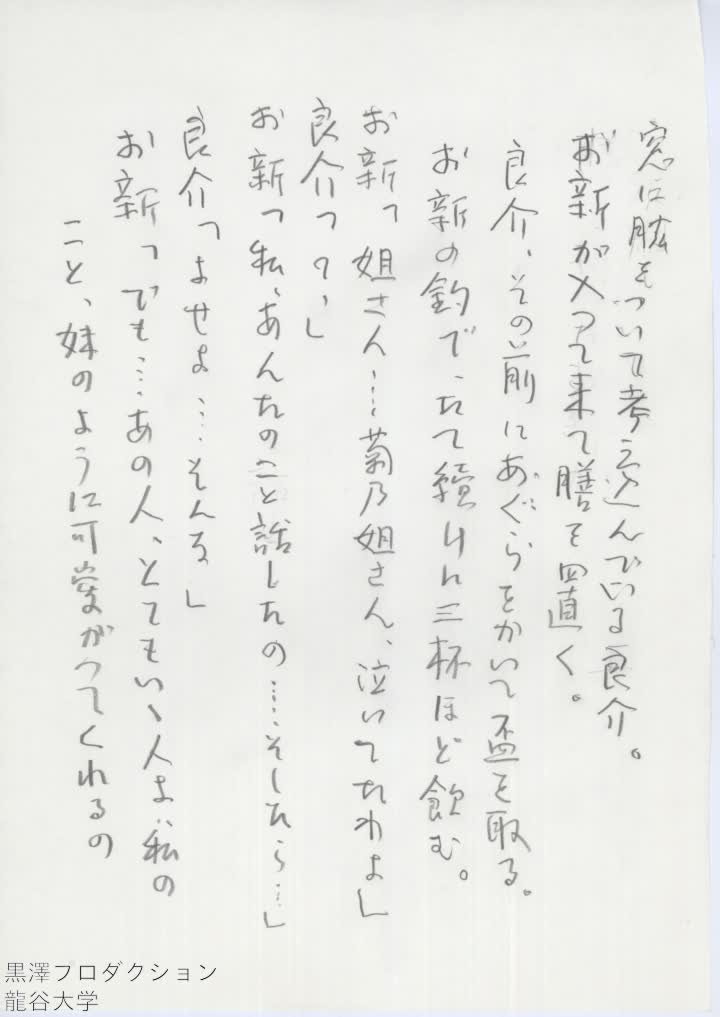 窓に肱をついて考え込んでいる良介。
お新が入って来て膳を置く。
良介、その前にあぐらをかいて盃を取る。
お新の酌で、たて續けに三杯ほど飲む。
お新「姐さん…菊乃姐さん、泣いてたわよ」
良介「？」
お新「私、あんたのこと話したの……そしたら…」
良介「よせよ…そんな」
お新「でも…あの人、とてもいゝ人よ、私の
こと、妹のように可愛がってくれるの
黒澤プロダクション
龍谷大学